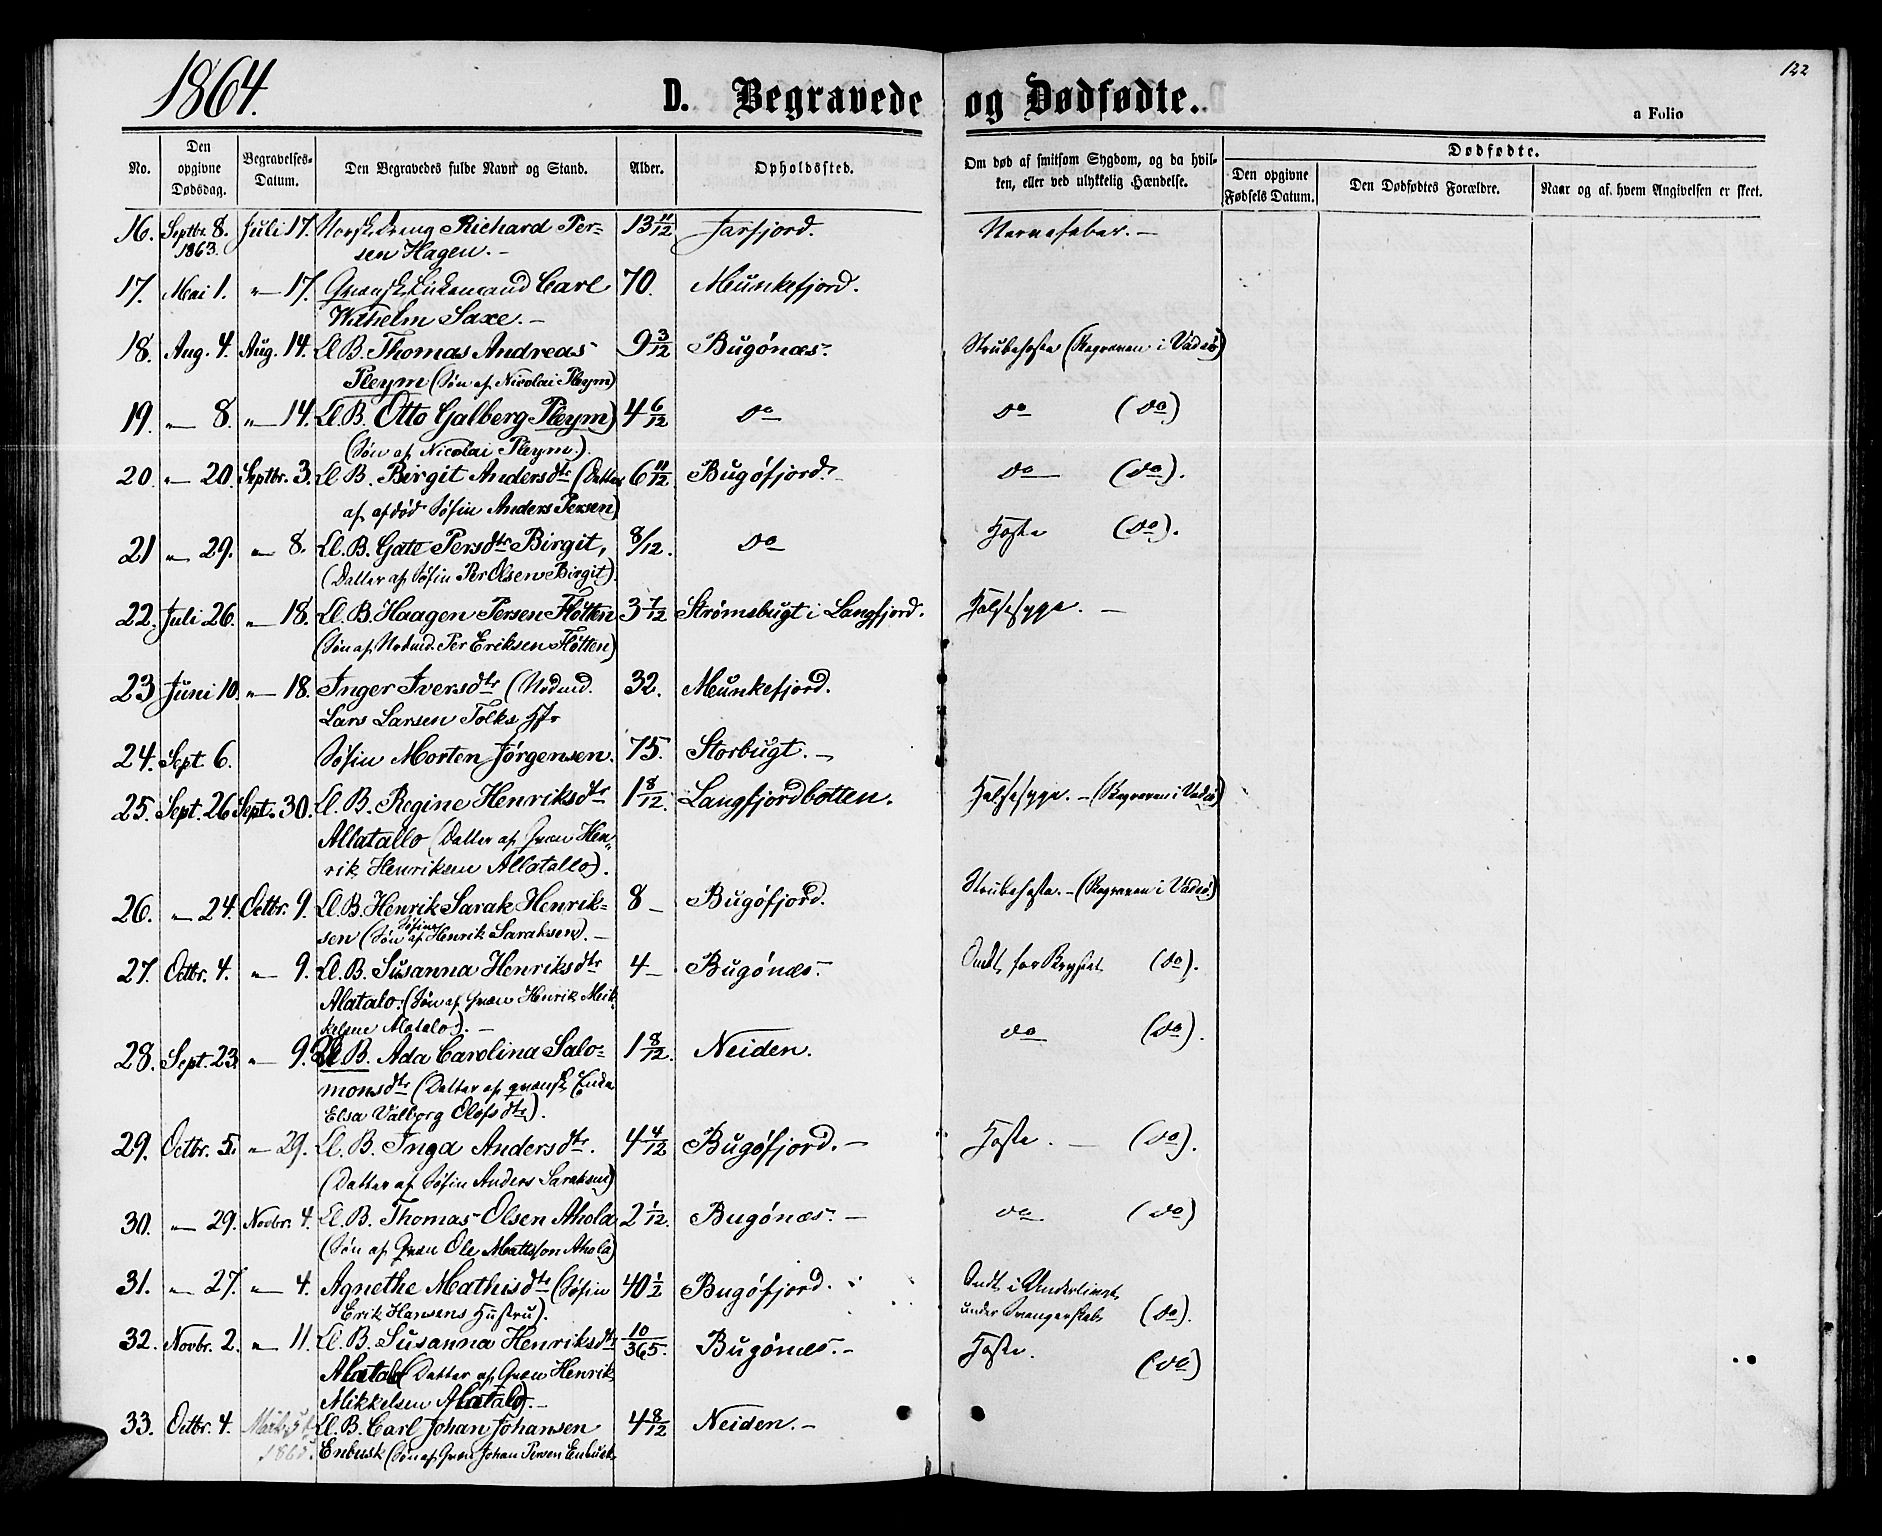 1864.
D. Begravede og Dødfødte.
122
a Folio
No.
Den opgivne Dødsdag.
Begravelses-Datum.
Den Begravedes fulde Navn og Stand.
Alder.
Opholdssted.
Om død af smitsom Sygdom, og da hvilken, eller ved ulykkelig Hændelse.
Dødfødte.
Den opgivne Fødsels Datum.
Den Dødfødtes Forældre.
Naar og af hvem Angivelsen er skeet.
16. Septbr. 8. 1863. Juli 17. Norsk dreng Richard Per- 13 11/12 Jarfjord. Nervefeber. –
sen Hagen. –
17. Mai 1. " 17. Qvænsk Enkemand Carl 70. Munkefjord.
Wilhelm Saxe. –
18. Aug. 4. Aug. 14. Ll. B. Thomas Andreas 9 3/12 Bugönæs. Strubehoste (Begraven i Vadsö)
Pleym (Søn af Nicolai Pleym)
19. " 8. " 14. Ll. B. Otto Galberg Pleym) 4 6/12 do do (do)
(Søn af Nicolai Pleym.)
20. " 20. Septbr. 3. Ll. B. Birgit Andersdtr (Datter 6 11/12 Bugöfjord. do (do).
af afdød Søfin Anders Persen)
21 " 29. " 8. Ll. B. Gate Persdtr Birgit, 8/12. do Hoste (do).
(Datter af Søfin Per Olsen Birgit).
22. Juli 26. " 18. Ll. B. Haagen Persen Fløtten 3 7/12 Strömsbugt i Langfjord. Halssyge. –
(Søn af Nordmd. Per Eriksen Fløtten)
23 Juni 10. " 18. Inger Iversdtr (Nordmd. 32. Munkefjord.
Lars Larsen Tolks H.
24. Sept. 6. Søfin Morten Jörgensen. 75. Storbugt. –
25. Sept. 26 Sept. 30. Ll. B. Regine Henriksdtr 1 8/12. Langfjordbotten. Halssyge. – (Begraven i Vadsö)
Allatallo (Datter af Qvæn Hen-
rik Henriksen Allatallo).
26. " 24. Octbr. 9. Ll. B. Henrik Sarak Henrik- 8 – Bugöfjord. Strubehoste. – (Begraven i Vadsö)
sen (Søn af Søfin Henrik Saraksen). –
27. Octbr. 4. " 9. Ll. B. Susanna Henriksdtr 4 – Bugönæs. Ondt for Brystet (do).
Alatalo. (Søn af Qvæn Henrik Mik-
kelsen Alatalo). –
28. Sept. 23 " 9. Ll. B. Ada Carolina Salo- 1 8/12. Neiden. do (do).
monsdtr (Datter af qvænsk Enke
Elsa Valborg Olofsdtr).
29. Octbr. 5. " 29. Ll. B. Inga Andersdtr. 4 4/12 Bugöfjord. – Hoste. – (do).
(Datter af Søfin Anders Saraksen)
30. " 29. Novbr. 4. Ll. B. Thomas Olsen Ahola 2 1/12. Bugönæs. – do (do)
(Søn af Qvæn Ole Mattsson Ahola)
31. " 27. " 4. Agnethe Mathisdtr (Søfin 40 1/2 Bugöfjord. Ondt i Underlivet
Erik Hansens Hustru). under Svangerskab (do).
32. Novbr. 2. " 11. Ll. B. Susanna Henriksdtr 10/365. Bugönæs. – Hoste. (do)
Alatalo (Datter af Qvæn Henrik
Mikkelsen Alatalo). –
33. Octbr. 4. 1865. Ll. B. Carl Johan Johansen 4 8/12 Neiden. –
Enbusk (Søn af Qvæn Johan Persen Enbusk